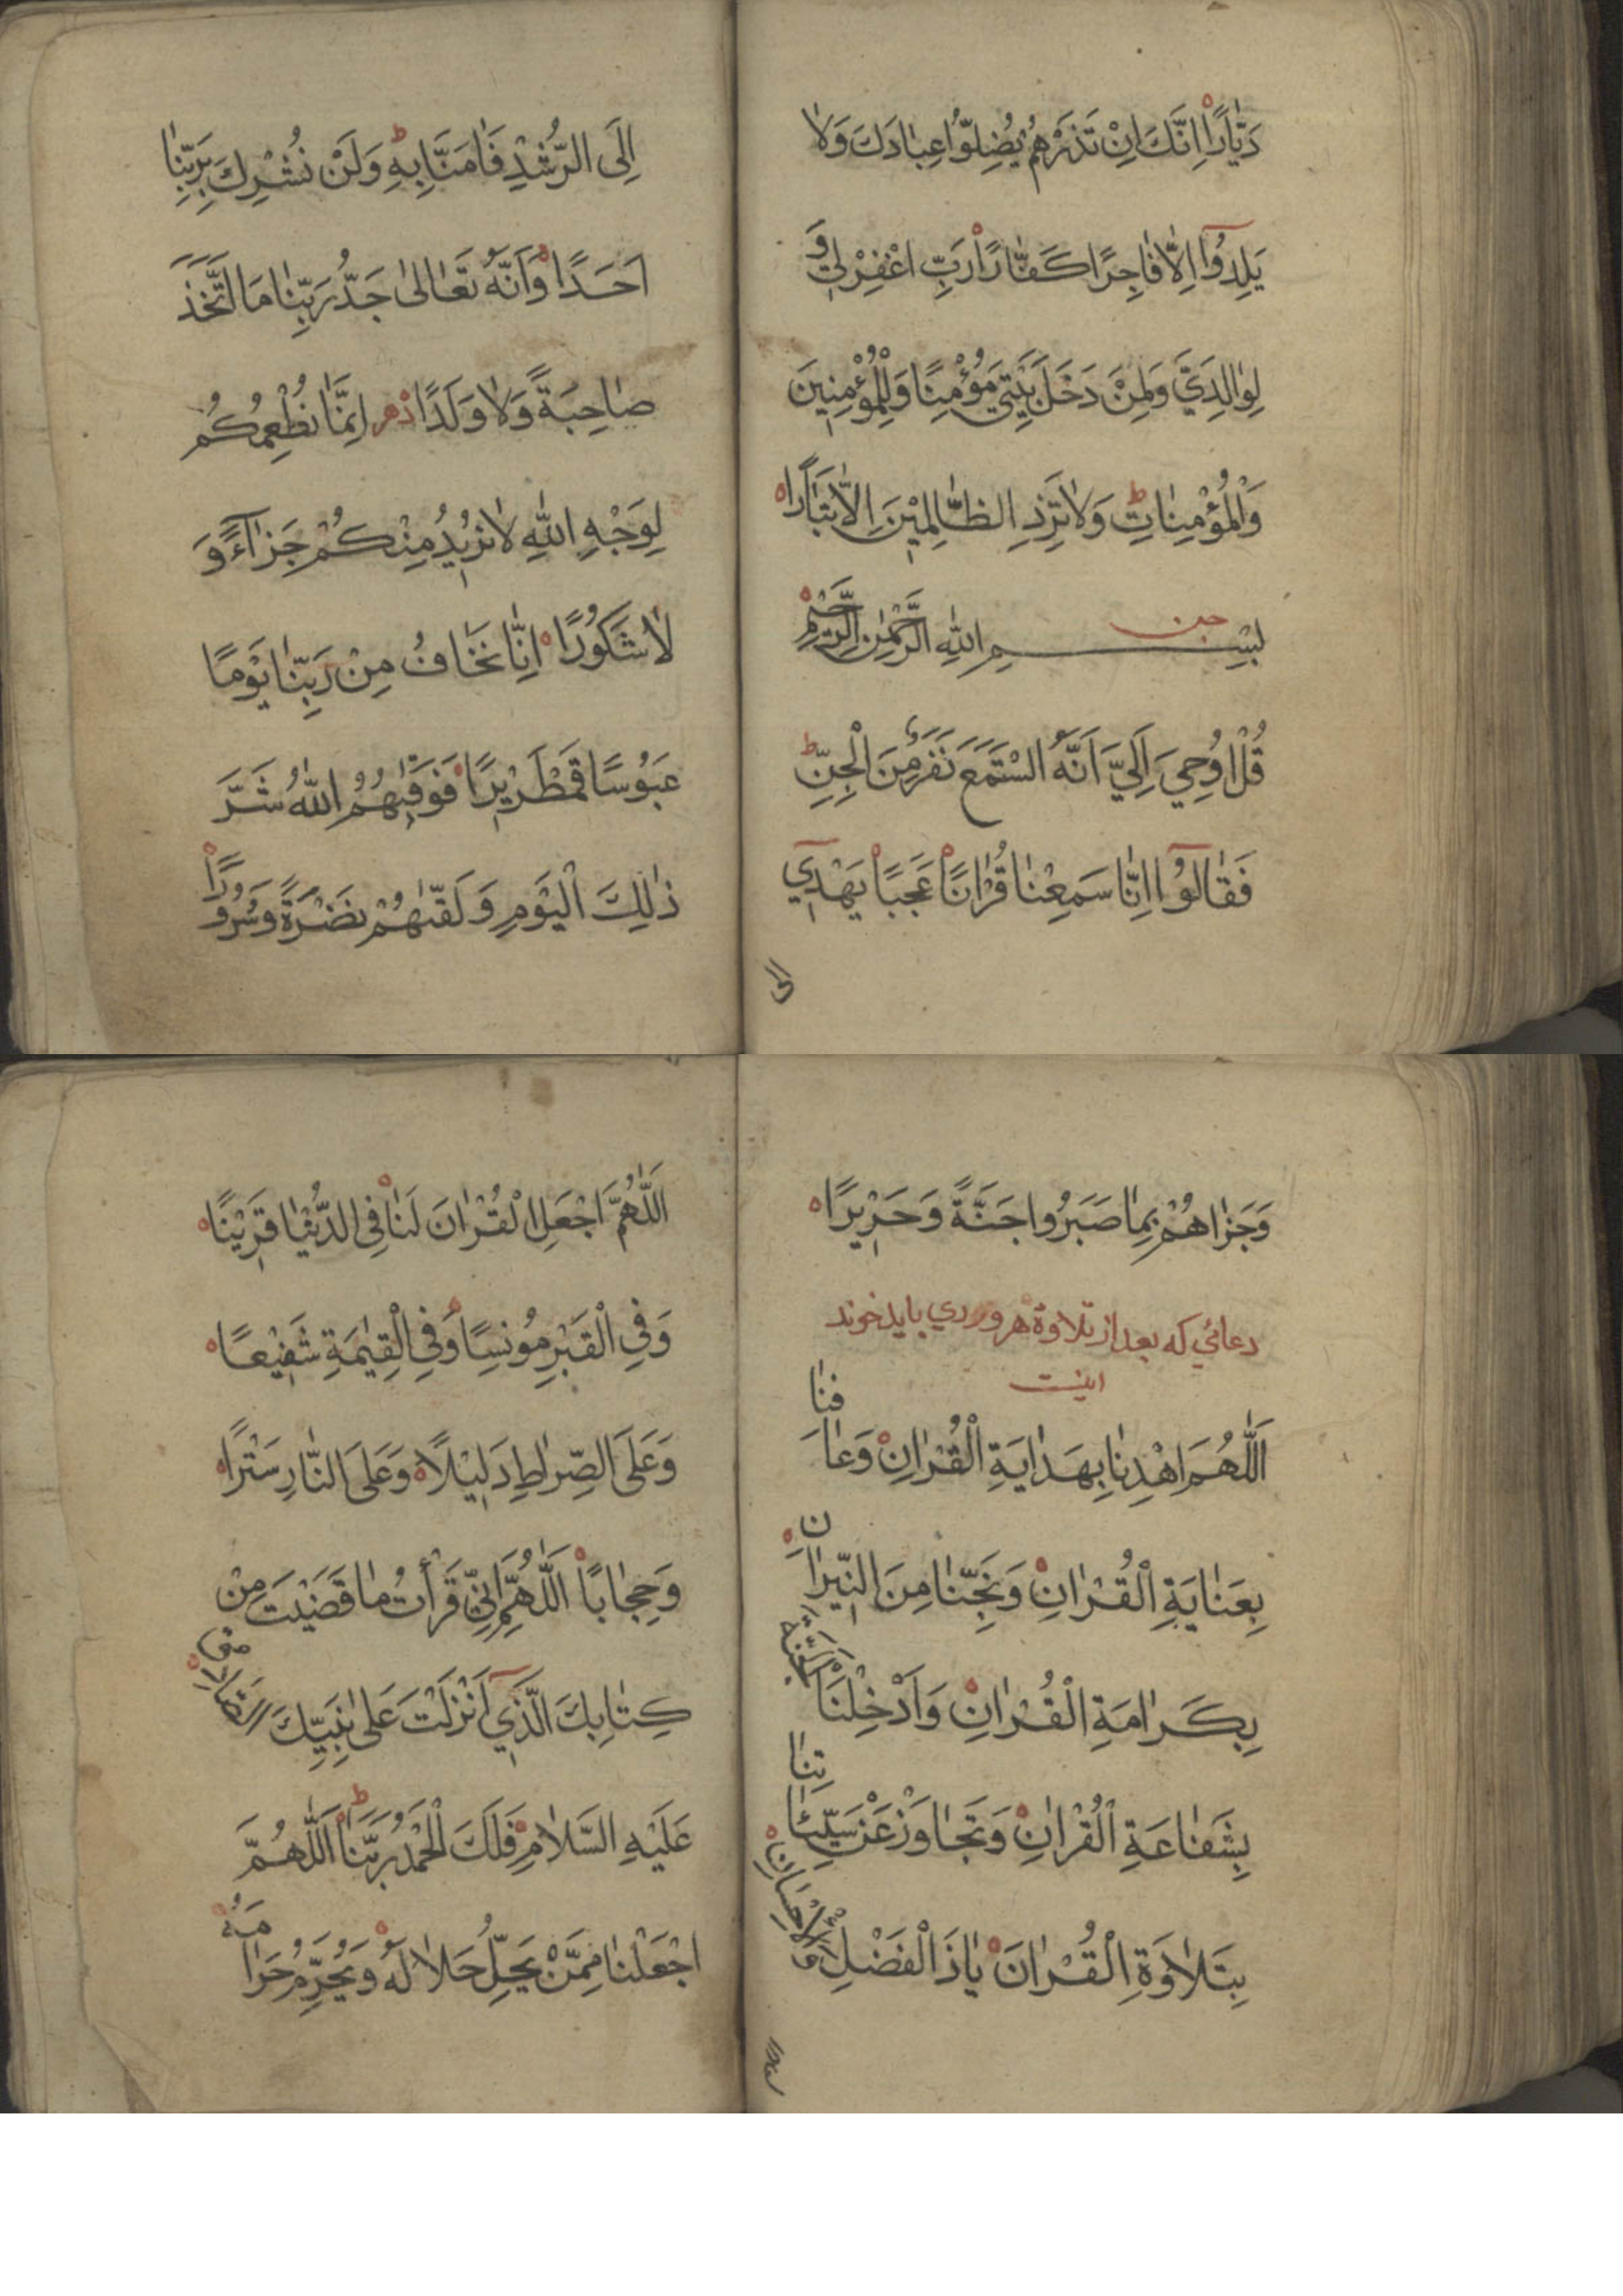 دَيَّارًا اِنَّكَ اِنْ تَذَرْهُمْ يُضِلُّوا عِبَادَكَ وَلَا
يَلِدُوٓا اِلَّا فَاجِرًا كَفَّارًا رَبِّ اغْفِرْلِي وَ
لِوَالِدَيَّ وَلِمَنْ دَخَلَ بَيْتِيَ مُؤْمِنًا وَلِلْمُؤْمِنِينَ
وَالْمُؤْمِنَاتِ ط وَلَا تَزِدِ الظَّالِمِيْنَ اِلَّا تَبَارًا
جن
بِسْمِ اللهِ الرَّحْمٰنِ الرَّحِيْمِ
قُلْ اُوحِيَ اِلَيَّ اَنَّهُ اسْتَمَعَ نَفَرٌ مِنَ الْجِنِّ ط
فَقَالُوٓا اِنَّا سَمِعْنَا قُرْاٰنًا عَجَبًا يَهْدِيٓ
الى
اِلَى الرُّشْدِ فَاٰمَنَّا بِهِ ط وَلَنْ نُشْرِكَ بِرَبِّنَا
اَحَدًا وَاَنَّهُ تَعَالٰى جَدُّ رَبِّنَا مَا اتَّخَذَ
صَاحِبَةً وَلَا وَلَدًا دهر اِنَّمَا نُطْعِمُكُمْ
لِوَجْهِ اللهِ لَا نُرِيْدُ مِنْكُمْ جَزَآءً وَ
لَا شُكُورًا اِنَّا نَخَافُ مِنْ رَبِّنَا يَوْمًا
عَبُوْسًا قَمْطَرِيْرًا فَوَقٰيهُمُ اللهُ شَرَّ
ذٰلِكَ الْيَوْمِ وَلَقّٰيهُمْ نَضْرَةً وَسُرُورًا
وَجَزَاهُمْ بِمَا صَبَرُوا جَنَّةً وَحَرِيْرًا
دعائي كه بعد از تلاوة هر وردي بايد خوند
اينست
اَللّٰهُمَّ اهْدِنَا بِهَدَايَةِ الْقُرْاٰنِ وَعَافِنَا
بِعَنَايَةِ الْقُرْاٰنِ وَنَجِّنَا مِنَ النِّيْرَانِ
بِكَرَامَةِ الْقُرْاٰنِ وَاَدْخِلْنَا الْجَنَّةَ
بِشَفَاعَةِ الْقُرْاٰنِ وَتَجَاوَزْ عَنْ سَيِّئَاتِنَا
بِتَلَاوَةِ الْقُرْاٰنَ يَاذَ الْفَضْلِ وَالْاِحْسَانِ
اَللّٰهُمَّ اجْعَلِ الْقُرْاٰنَ لَنَا فِي الدُّنْيَا قَرِيْنًا
وَفِي الْقَبْرِ مُونِسًا وَفِي الْقِيٰمَةِ شَفِيْعًا
وَعَلَى الصِّرَاطِ دَلِيْلًا وَعَلَى النَّارِ سَتْرًا
وَحِجَابًا اَللّٰهُمَّ اِنِّي قَرَأْتُ مَا قَضَيْتَ مِنْ
كِتَابِكَ الَّذِيٓ اَنْزَلْتَ عَلٰى نَبِيِّكَ
عَلَيْهِ السَّلَامِ فَلَكَ الْحَمْدُ رَبَّنَا ط اَللّٰهُمَّ
اجْعَلْنَا مِمَّنْ يَحِلُّ حَلَالَهُ وَيُحَرِّمُ حَرَامَهُ